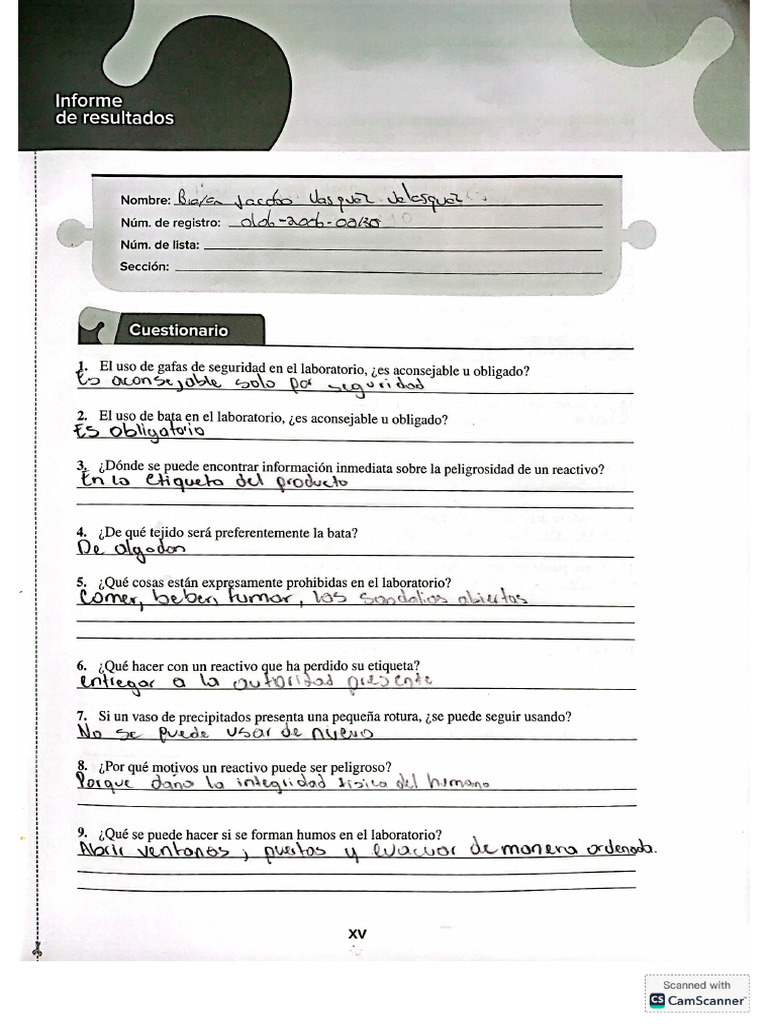 Informe
de resultados
Nombre: Jacobo Vasquez Velasquez
Núm. de registro:
Núm. de lista:
Sección:
Cuestionario
1. El uso de gafas de seguridad en el laboratorio, ¿es aconsejable u obligado?
Es aconsejable solo por seguridad
2. El uso de bata en el laboratorio, ¿es aconsejable u obligado?
Es obligatorio
3. ¿Dónde se puede encontrar información inmediata sobre la peligrosidad de un reactivo?
En la etiqueta del producto
4. ¿De qué tejido será preferentemente la bata?
De algodon
5. ¿Qué cosas están expresamente prohibidas en el laboratorio?
Comer, beber, fumar, las sandalias abiertas
6. ¿Qué hacer con un reactivo que ha perdido su etiqueta?
entregar a la autoridad presente
7. Si un vaso de precipitados presenta una pequeña rotura, ¿se puede seguir usando?
No se puede usar de nuevo
8. ¿Por qué motivos un reactivo puede ser peligroso?
Porque daña la integridad fisica del humano
9. ¿Qué se puede hacer si se forman humos en el laboratorio?
Abrir ventanas, puertas y evacuar de manera ordenada.
XV
Scanned with
CS CamScanner